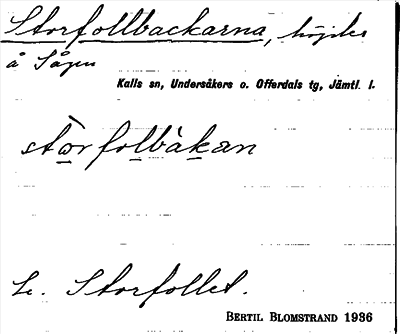 Storfollbackarna, höjder
å Sågen
Kalls sn, Undersåkers o. Offerdals tg, Jämtl. l.
stòrfolbàkan
Se. Storfollet.
BERTIL BLOMSTRAND 1936